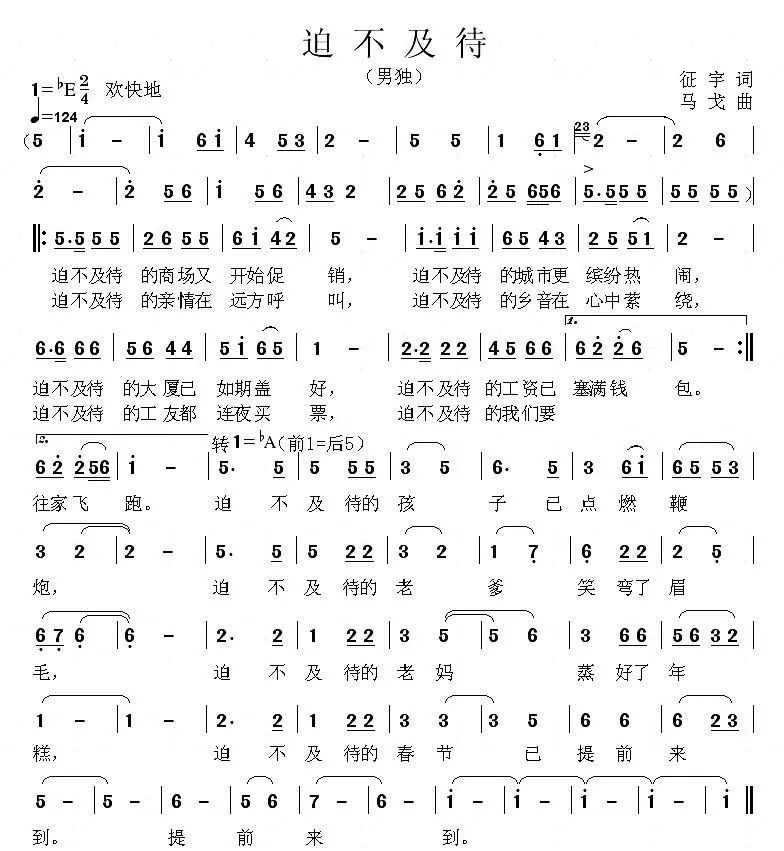 迫不及待
（男独）
1=♭E 2/4 欢快地
♩=124
征宇 词
马戈 曲
（5 | i - | i 6 i | 4 5 3 | 2 - | 5 5 | 1 6 1 | 23 2 - | 2 6 |
2 - | 2 5 6 | i 5 6 | 4 3 2 | 2 5 6 2 | 2 5 6 5 6 | 5 · 5 5 5 | 5 5 5 5 ）
‖: 5 · 5 5 5 | 2 6 5 5 | 6 i 4 2 | 5 - | i · i i i | 6 5 4 3 | 2 5 5 1 | 2 - |
迫不及待 的商场又 开始促 销， 迫不及待 的城市更 缤纷热 闹，
迫不及待 的亲情在 远方呼 叫， 迫不及待 的乡音在 心中萦 绕，
1.
6 · 6 6 6 | 5 6 4 4 | 5 i 6 5 | 1 - | 2 · 2 2 2 | 4 5 6 6 | 6 2 2 6 | 5 - :‖
迫不及待 的大厦已 如期盖 好， 迫不及待 的工资已 塞满钱 包。
迫不及待 的工友都 连夜买 票， 迫不及待 的我们要
2. 转1=♭A（前1=后5）
6 2 2 5 6 | i - | 5 · 5 | 5 5 5 | 3 5 | 6 · 5 | 3 6 i | 6 5 5 3 |
往家飞 跑。 迫 不 及 待的 孩 子 已 点 燃 鞭
3 2 | 2 - | 5 · 5 | 5 2 2 | 3 2 | 1 7 | 6 2 2 | 2 5 |
炮， 迫 不 及 待的 老 爹 笑 弯了 眉
6 7 6 | 6 - | 2 · 2 | 1 2 2 | 3 5 | 5 6 | 3 6 6 | 5 6 3 2 |
毛， 迫 不 及 待的 老 妈 蒸 好了 年
1 - | 1 - | 2 · 2 | 1 2 2 | 3 3 | 3 5 | 6 6 | 6 2 3 |
糕， 迫 不 及 待的 春 节 已 提 前 来
5 - | 5 - | 6 - | 5 6 | 7 - | 6 - | i - | i - | i - | i - ‖
到。 提 前 来 到。